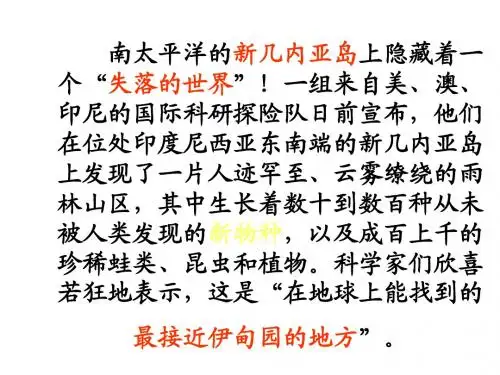 南太平洋的新几内亚岛上隐藏着一
个“失落的世界”！一组来自美、澳、
印尼的国际科研探险队日前宣布，他们
在位处印度尼西亚东南端的新几内亚岛
上发现了一片人迹罕至、云雾缭绕的雨
林山区，其中生长着数十到数百种从未
被人类发现的新物种，以及成百上千的
珍稀蛙类、昆虫和植物。科学家们欣喜
若狂地表示，这是“在地球上能找到的
最接近伊甸园的地方”。